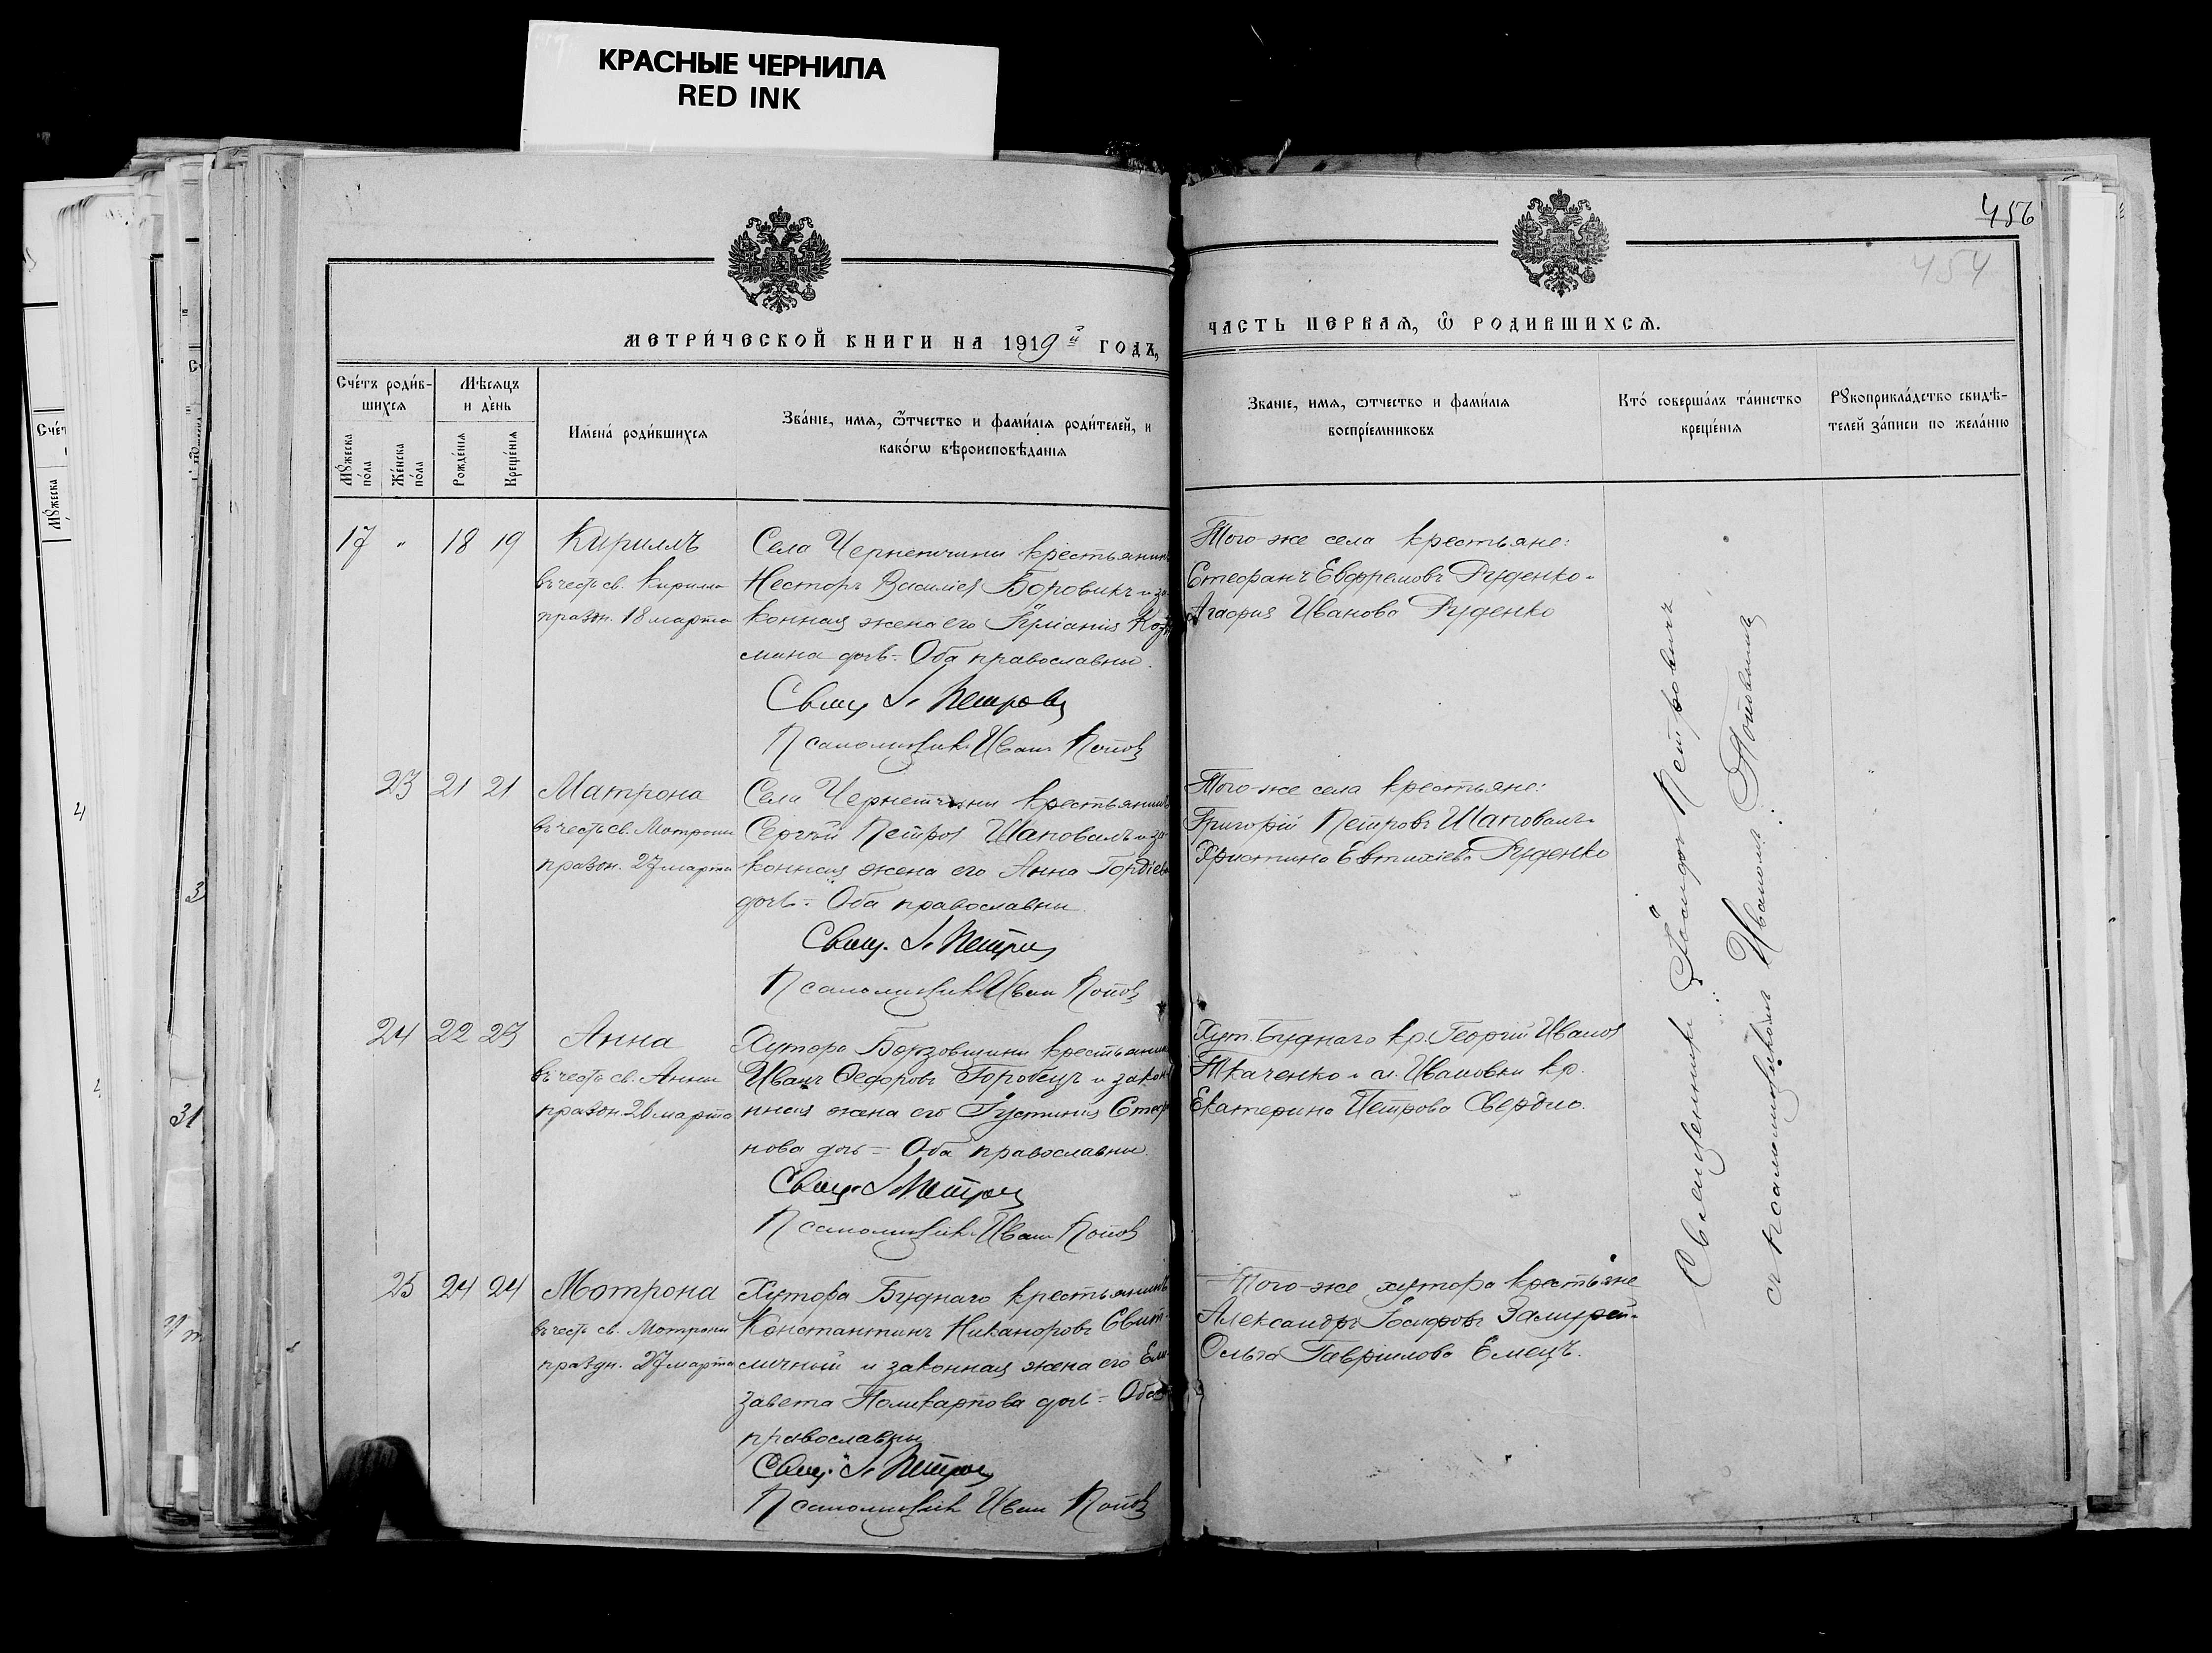 КРАСНЫЕ ЧЕРНИЛА
RED INK
456
454
МЕТРИ́ЧЕСКОЙ КНИГИ НА 1919й ГОДЪ,
ЧАСТЬ ПЕРВАЯ, Ѿ РОДИВШИХСЯ.
Сче́тъ роди́в-
шихся
Мꙋжеска по́ла
Же́нска по́ла
Мѣсяцъ
и де́нь
Рожде́нія
Креще́нія
Имена́ роди́вшихся
Зва́ніе, имя, ѿтчество и фами́лія роди́телей, и
како́гѡ вѣроисповѣданія
Званіе, имя, ѡтчество и фами́лія
воспріемниковъ
Кто́ соверша́лъ та́инство
креще́нія
Рꙋкоприкла́дство свидѣ-
телей за́писи по жела́нію
17 " 18 19
Кириллъ
въ честь св. Кирилла
праздн. 18 марта
Села Чернетчины крестьянинъ
Несторъ Василіев Боровикъ и за-
конная жена его Іуліанія Козь
мина дочь - Оба православны.
Свящ. І. Петров
Псаломщикъ Иван Попов
Того-же села крестьяне:
Стефанъ Евфремовъ Руденко и
Агафия Иванова Руденко
23 21 21
Матрона
въ честь св. Мотроны
праздн. 27 марта
Села Чернетчины крестьянинъ
Сергѣй Петров Шаповалъ и за-
конная жена его Анна Гордіева
дочь - Оба православны
Свящ. І. Петров
Псаломщикъ Иван Попов
Того-же села крестьяне:
Григорій Петровъ Шаповалъ и
Христина Евтихіева Руденко
24 22 23
Анна
въ честь св. Анны
праздн. 26 марта
Хутора Борзовщины крестьянинъ
Иванъ Федоровъ Горобецъ и закон-
ная жена его Іустинія Стефа
нова дочь - Оба православны.
Свящ. І. Петров
Псаломщикъ Иван Попов
Хут. Буднаго кр. Георгій Иванов
Ткаченко и сл. Ивановки кр.
Екатерина Петрова Свердло.
25 24 24
Мотрона
въ честь св. Мотроны
праздн. 27 марта
Хутора Буднаго крестьянинъ
Константинъ Никаноровъ Свит-
личный и законная жена его Ели-
завета Поликарпова дочь - Оба
православны
Свящ. І. Петров
Псаломщикъ Иван Попов
Того-же хутора крестьяне
Александръ Іосифовъ и
Ольга Гавріилова Емецъ.
Священникъ Петровичъ
съ псаломщикомъ Иваномъ